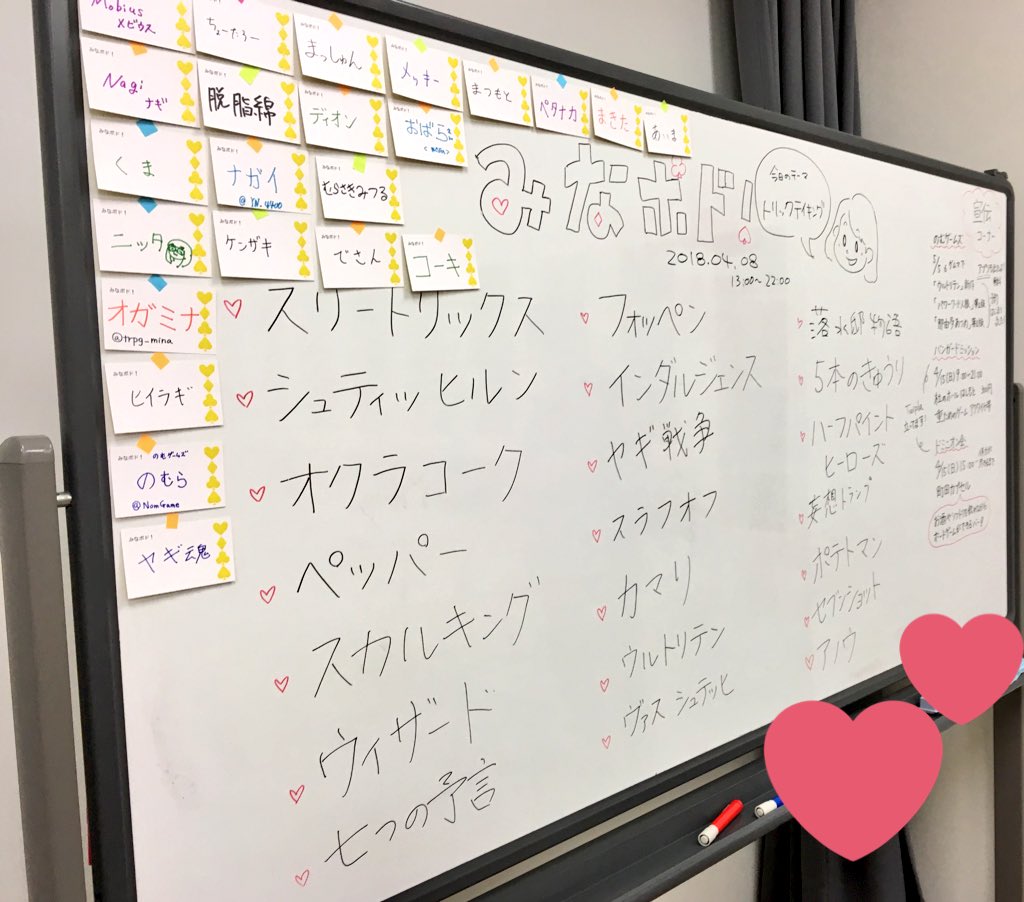 Mobius
メビウス
ちょーたろー
まっしゅん
メッキー
まつもと
ペタナカ
まきた
あいま
Nagi
ナギ
脱脂綿
ディオン
おばら
くま
ナガイ
むらさきみつる
ニッタ
ケンザキ
でさん
コーキ
オガミナ
@trpg_mina
ヒイラギ
みなボド!
のむゲームズ
のむら
@NomGame
みなボド!
ヤギ魂
みなボド!
今日のテーマ
トリックテイキング
2018.04.08
13:00~22:00
スリートリックス
シュティッヒルン
オクラコーク
ペッパー
スカルキング
ウィザード
七つの予言
フォッペン
インダルジェンス
ヤギ戦争
スラフオフ
カマリ
ウルトリテン
ヴァス シュテッヒ
落水邸物語
5本のきゅうり
ハーフペイント
ヒーローズ
妄想トランプ
ポテトマン
セブンショット
アノウ
宣伝
コーナー
のむゲームズ
バンガードミッション
4/15(日)9:00~21:00
ドミニオン会
4/15(日)